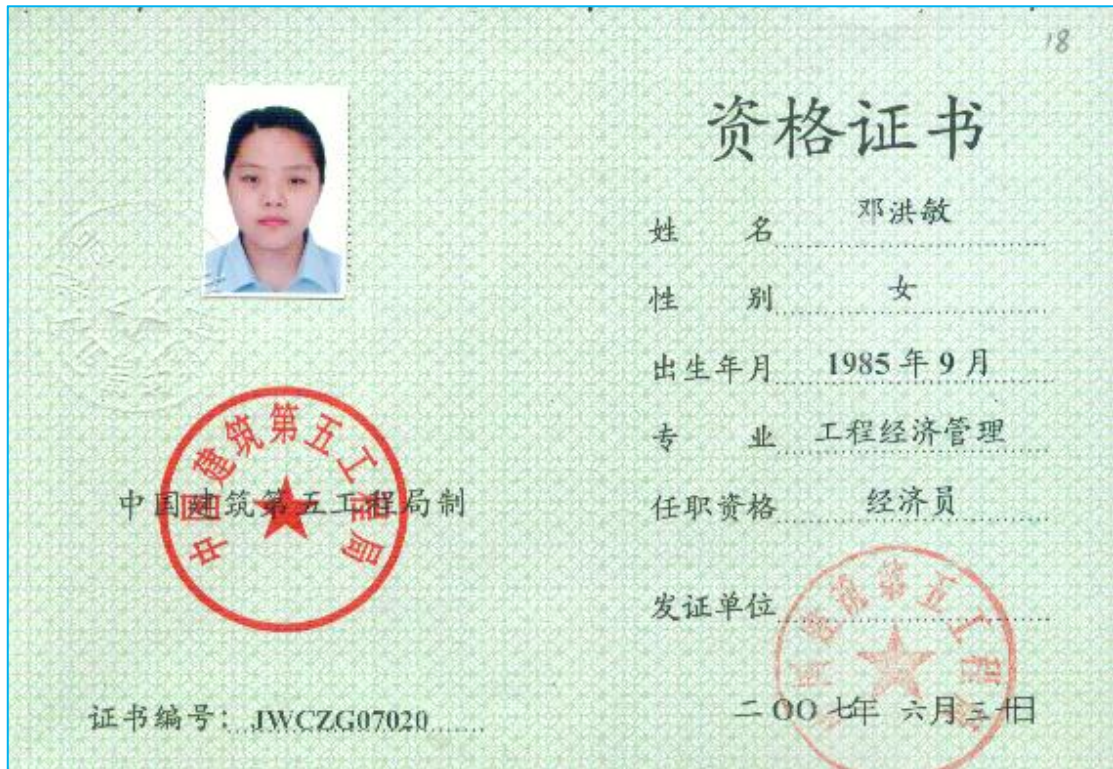 18
资格证书
姓 名 邓洪敏
性 别 女
出生年月 1985 年 9 月
专 业 工程经济管理
任职资格 经济员
发证单位
中国建筑第五工程局
二〇〇七年 六月三十日
中国建筑第五工程局
中国建筑第五工程局制
证书编号: JWCZG07020